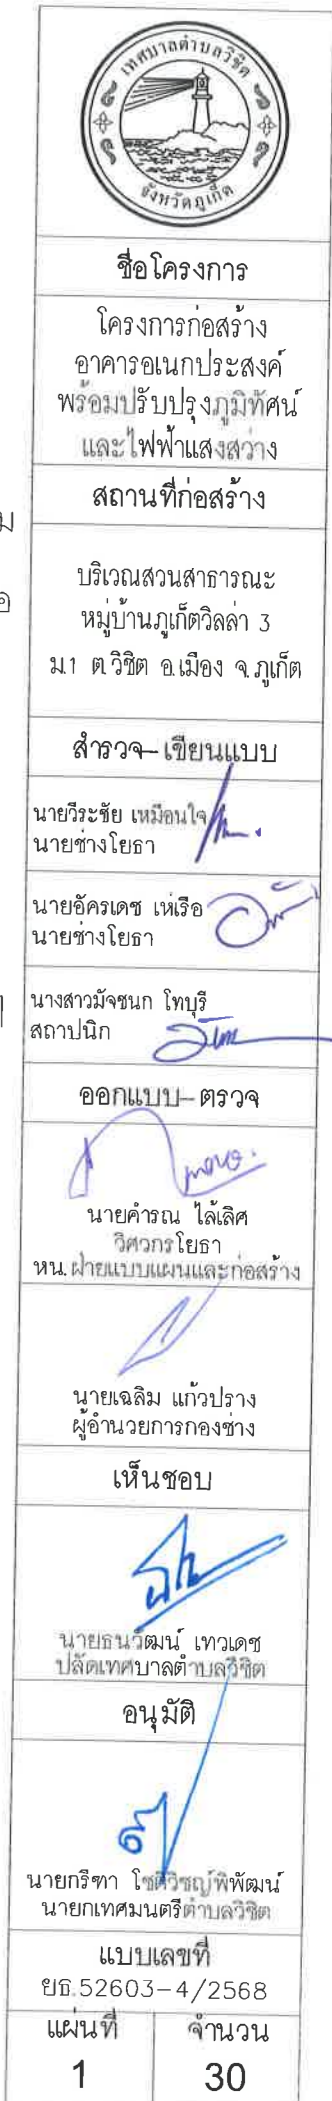 เทศบาลตำบลวิชิต
จังหวัดภูเก็ต
ชื่อโครงการ
โครงการก่อสร้าง
อาคารอเนกประสงค์
พร้อมปรับปรุงภูมิทัศน์
และไฟฟ้าแสงสว่าง
สถานที่ก่อสร้าง
บริเวณสวนสาธารณะ
หมู่บ้านภูเก็ตวิลล่า 3
ม.1 ต.วิชิต อ.เมือง จ.ภูเก็ต
สำรวจ-เขียนแบบ
นายวีระชัย เหมือนใจ
นายช่างโยธา
นายอัครเดช เห่เรือ
นายช่างโยธา
นางสาวมัจชนก โทบุรี
สถาปนิก
ออกแบบ-ตรวจ
นายคำรณ ไล้เลิศ
วิศวกรโยธา
หน.ฝ่ายแบบแผนและก่อสร้าง
นายเฉลิม แก้วปราง
ผู้อำนวยการกองช่าง
เห็นชอบ
นายธนวัฒน์ เทวเดช
ปลัดเทศบาลตำบลวิชิต
อนุมัติ
นายกรีฑา โชติวิชญ์พิพัฒน์
นายกเทศมนตรีตำบลวิชิต
แบบเลขที่
ยธ.52603-4/2568
แผ่นที่ จำนวน
1 30